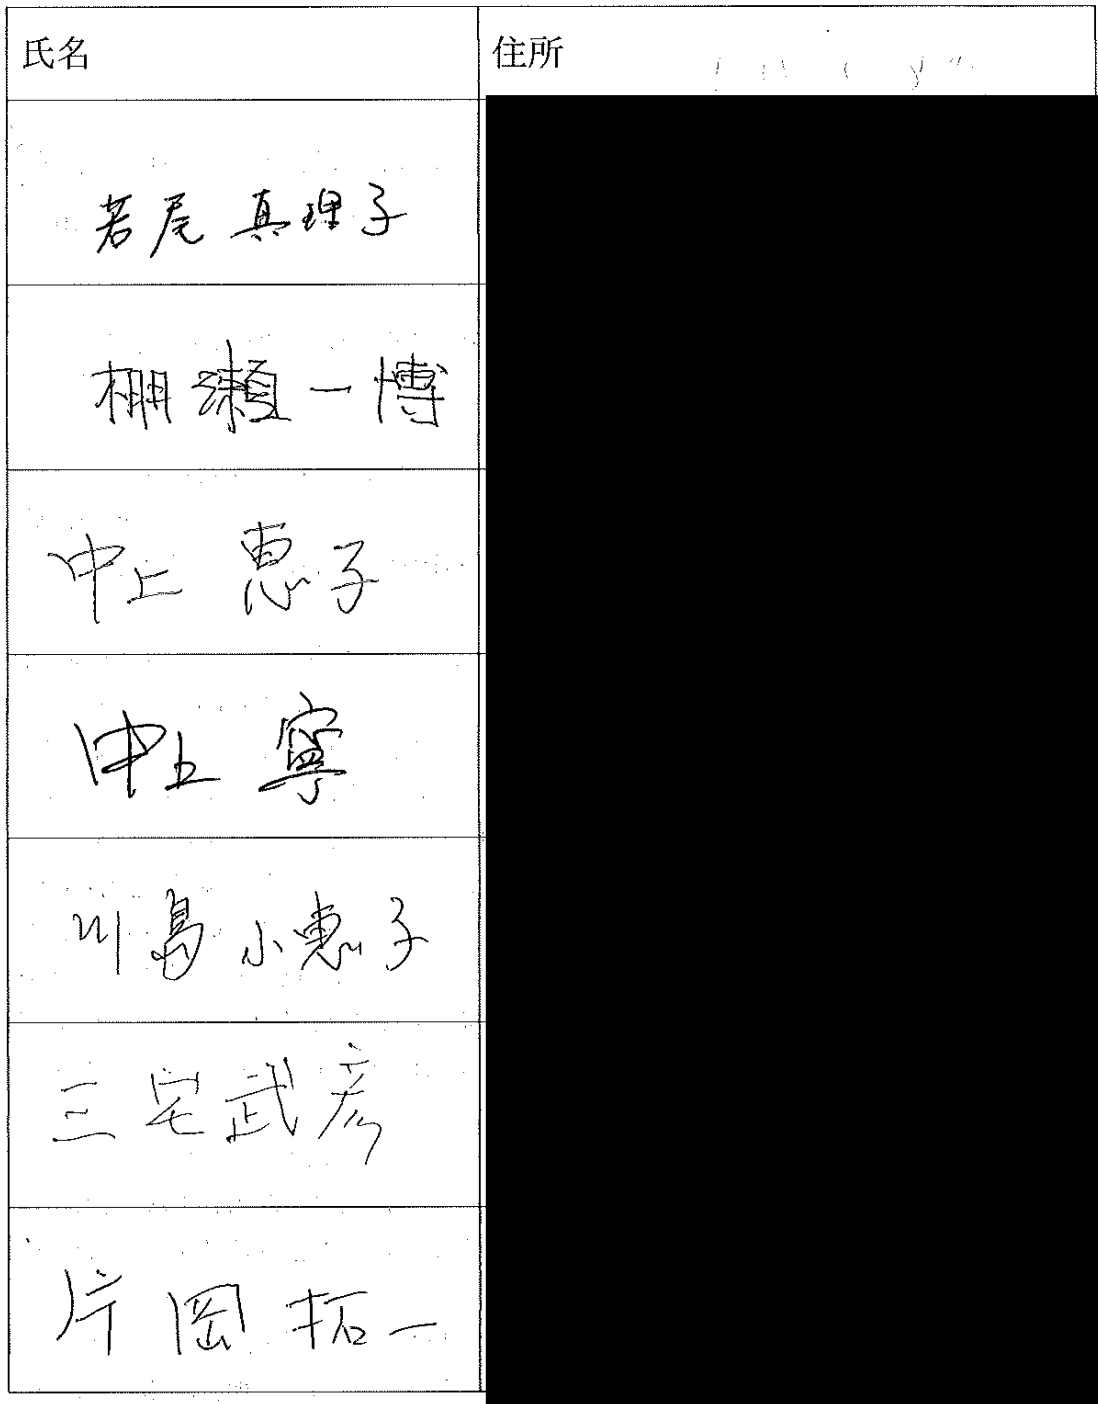 氏名 住所
若尾 真理子
棚瀬 一博
中上 恵子
中上 寧
川島 小恵子
三宅武彦
片岡 拓一